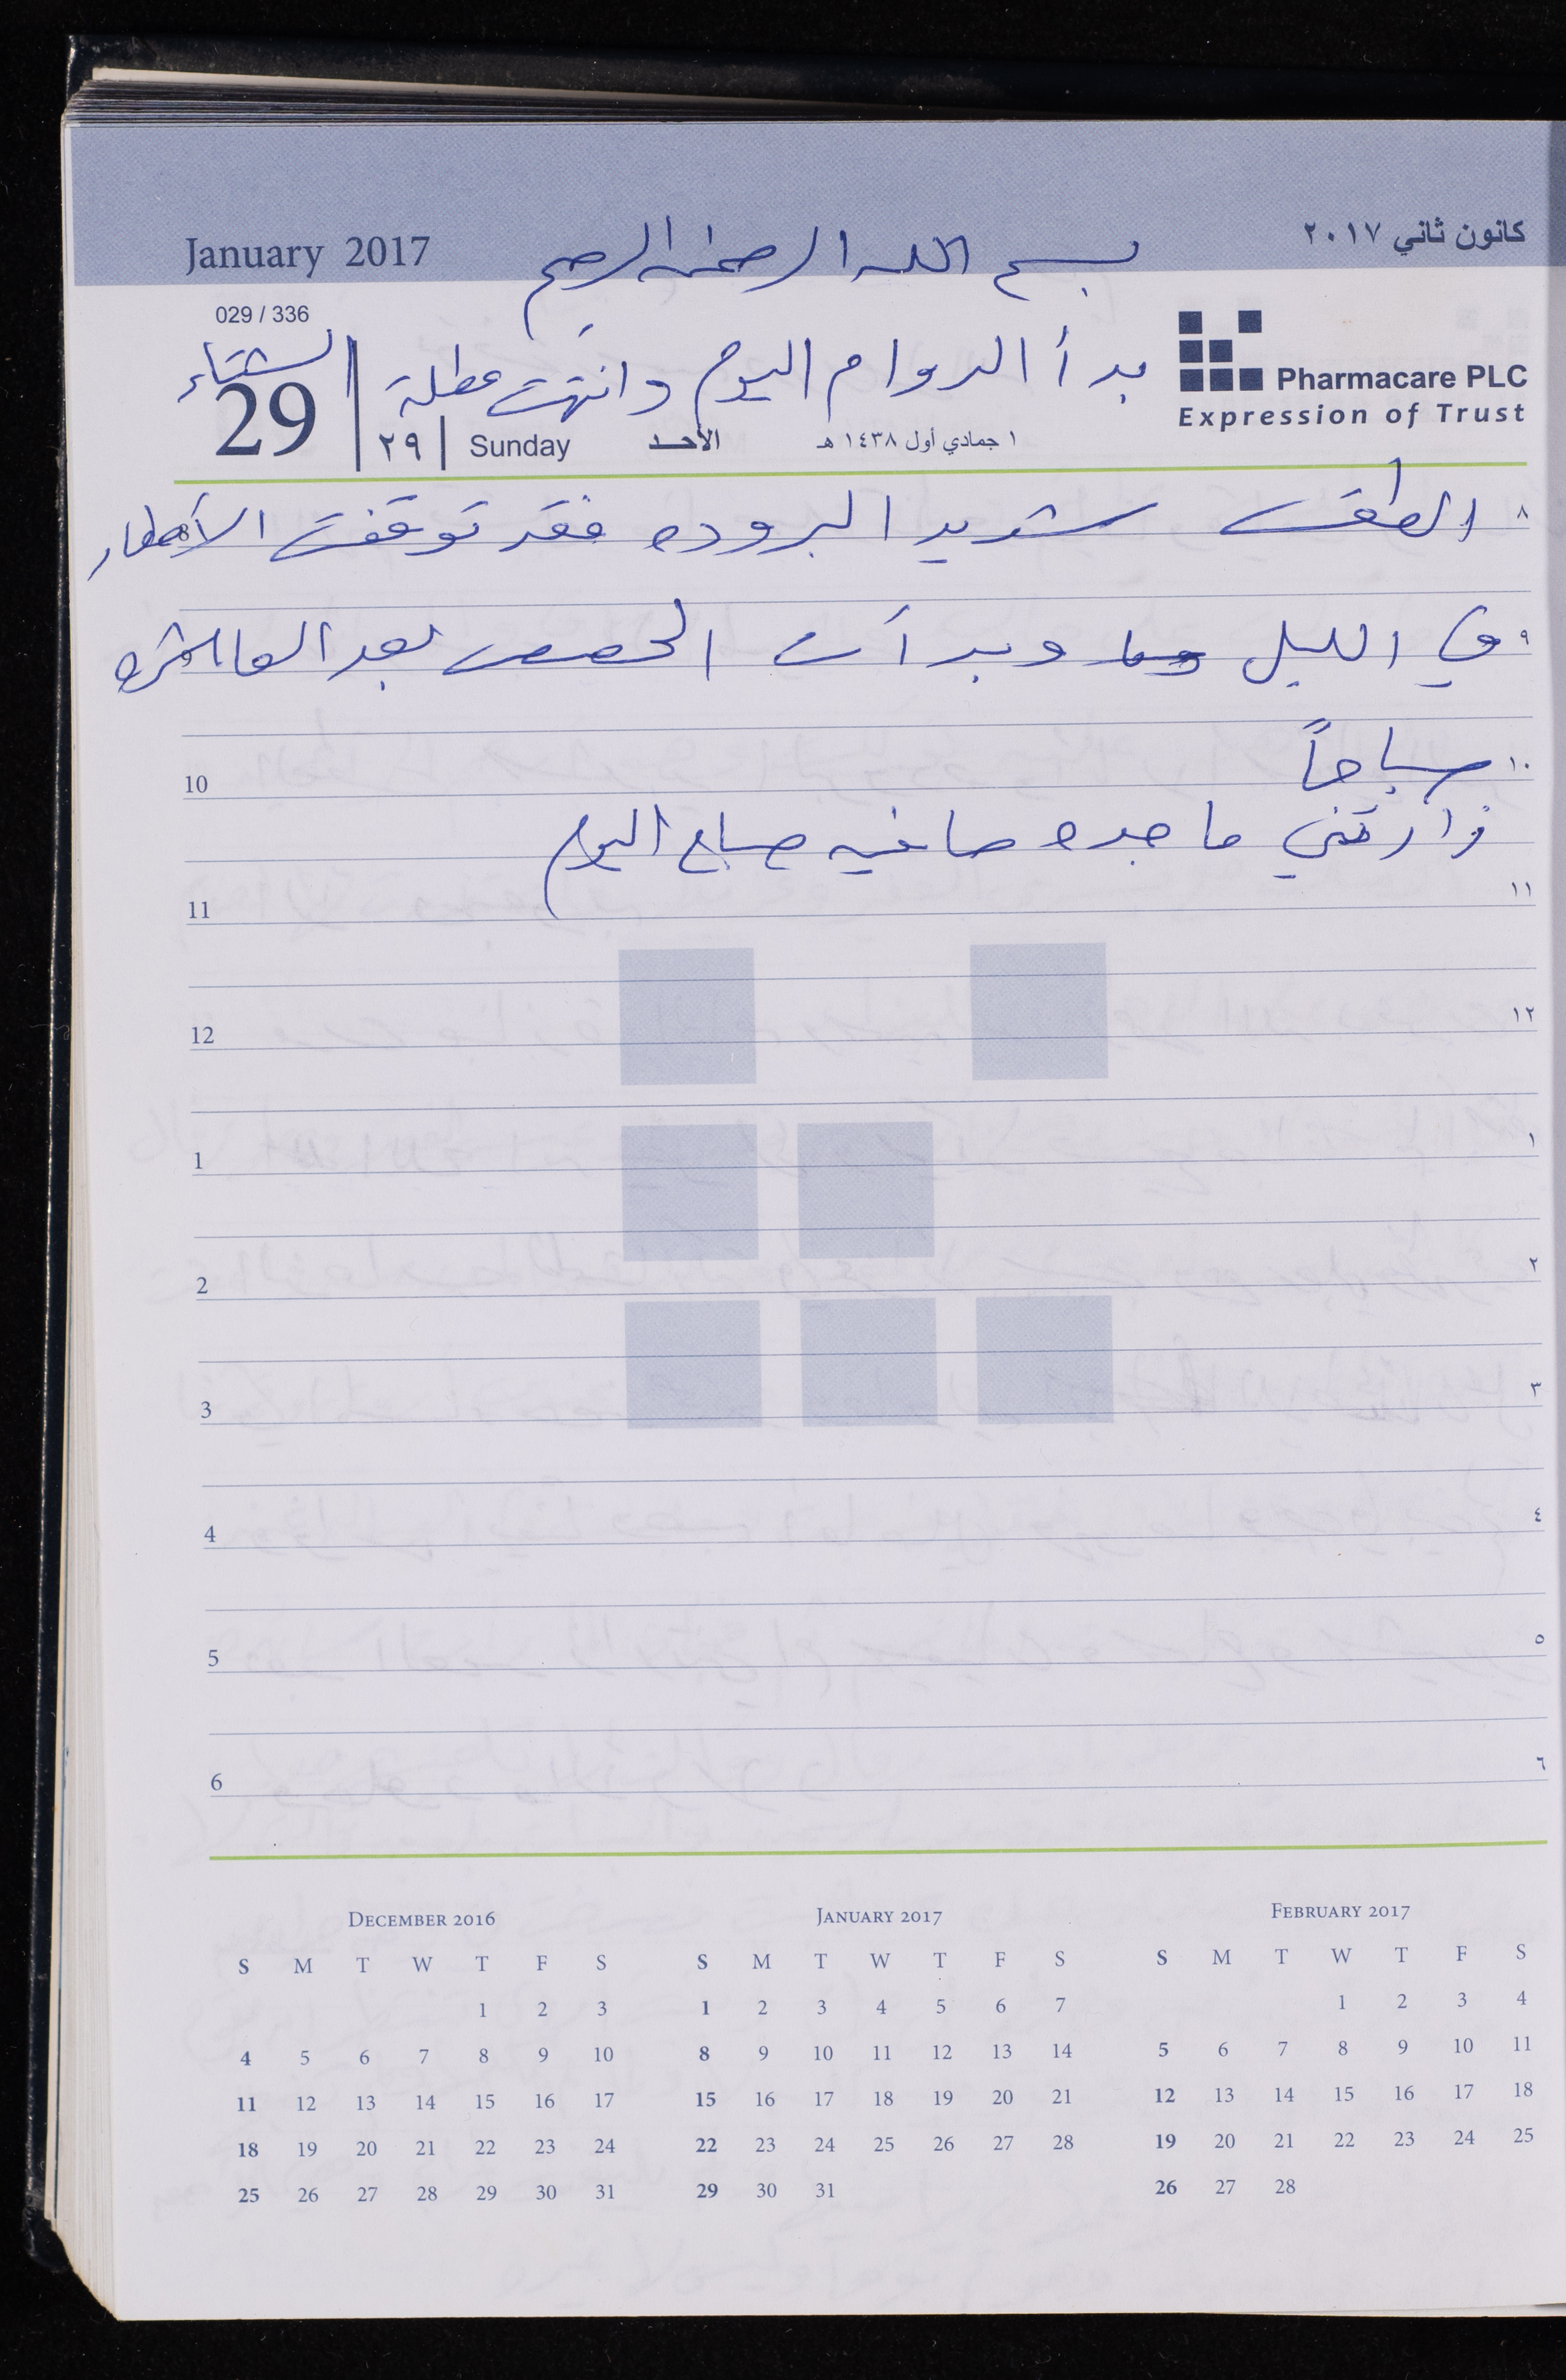 January 2017
كانون ثاني ٢٠١٧
بسم الله الرحمن الرحيم
029 / 336
Pharmacare PLC
Expression of Trust
بدأ الدوام اليوم وانتهت عطلة الشتاء
29
٢٩ Sunday الأحد ١ جمادي أول ١٤٣٨ هـ
٨ الطقس شديد البروده فقد توقفت الأمطار
٩ في الليل وبدأت الحصص بعد العاشره
10 صباحاً ١٠
زارتني ماجده صافيه صباح اليوم
11 ١١
12 ١٢
1 ١
2 ٢
3 ٣
4 ٤
5 ٥
6 ٦
December 2016
S M T W T F S
1 2 3
4 5 6 7 8 9 10
11 12 13 14 15 16 17
18 19 20 21 22 23 24
25 26 27 28 29 30 31
January 2017
S M T W T F S
1 2 3 4 5 6 7
8 9 10 11 12 13 14
15 16 17 18 19 20 21
22 23 24 25 26 27 28
29 30 31
February 2017
S M T W T F S
1 2 3 4
5 6 7 8 9 10 11
12 13 14 15 16 17 18
19 20 21 22 23 24 25
26 27 28